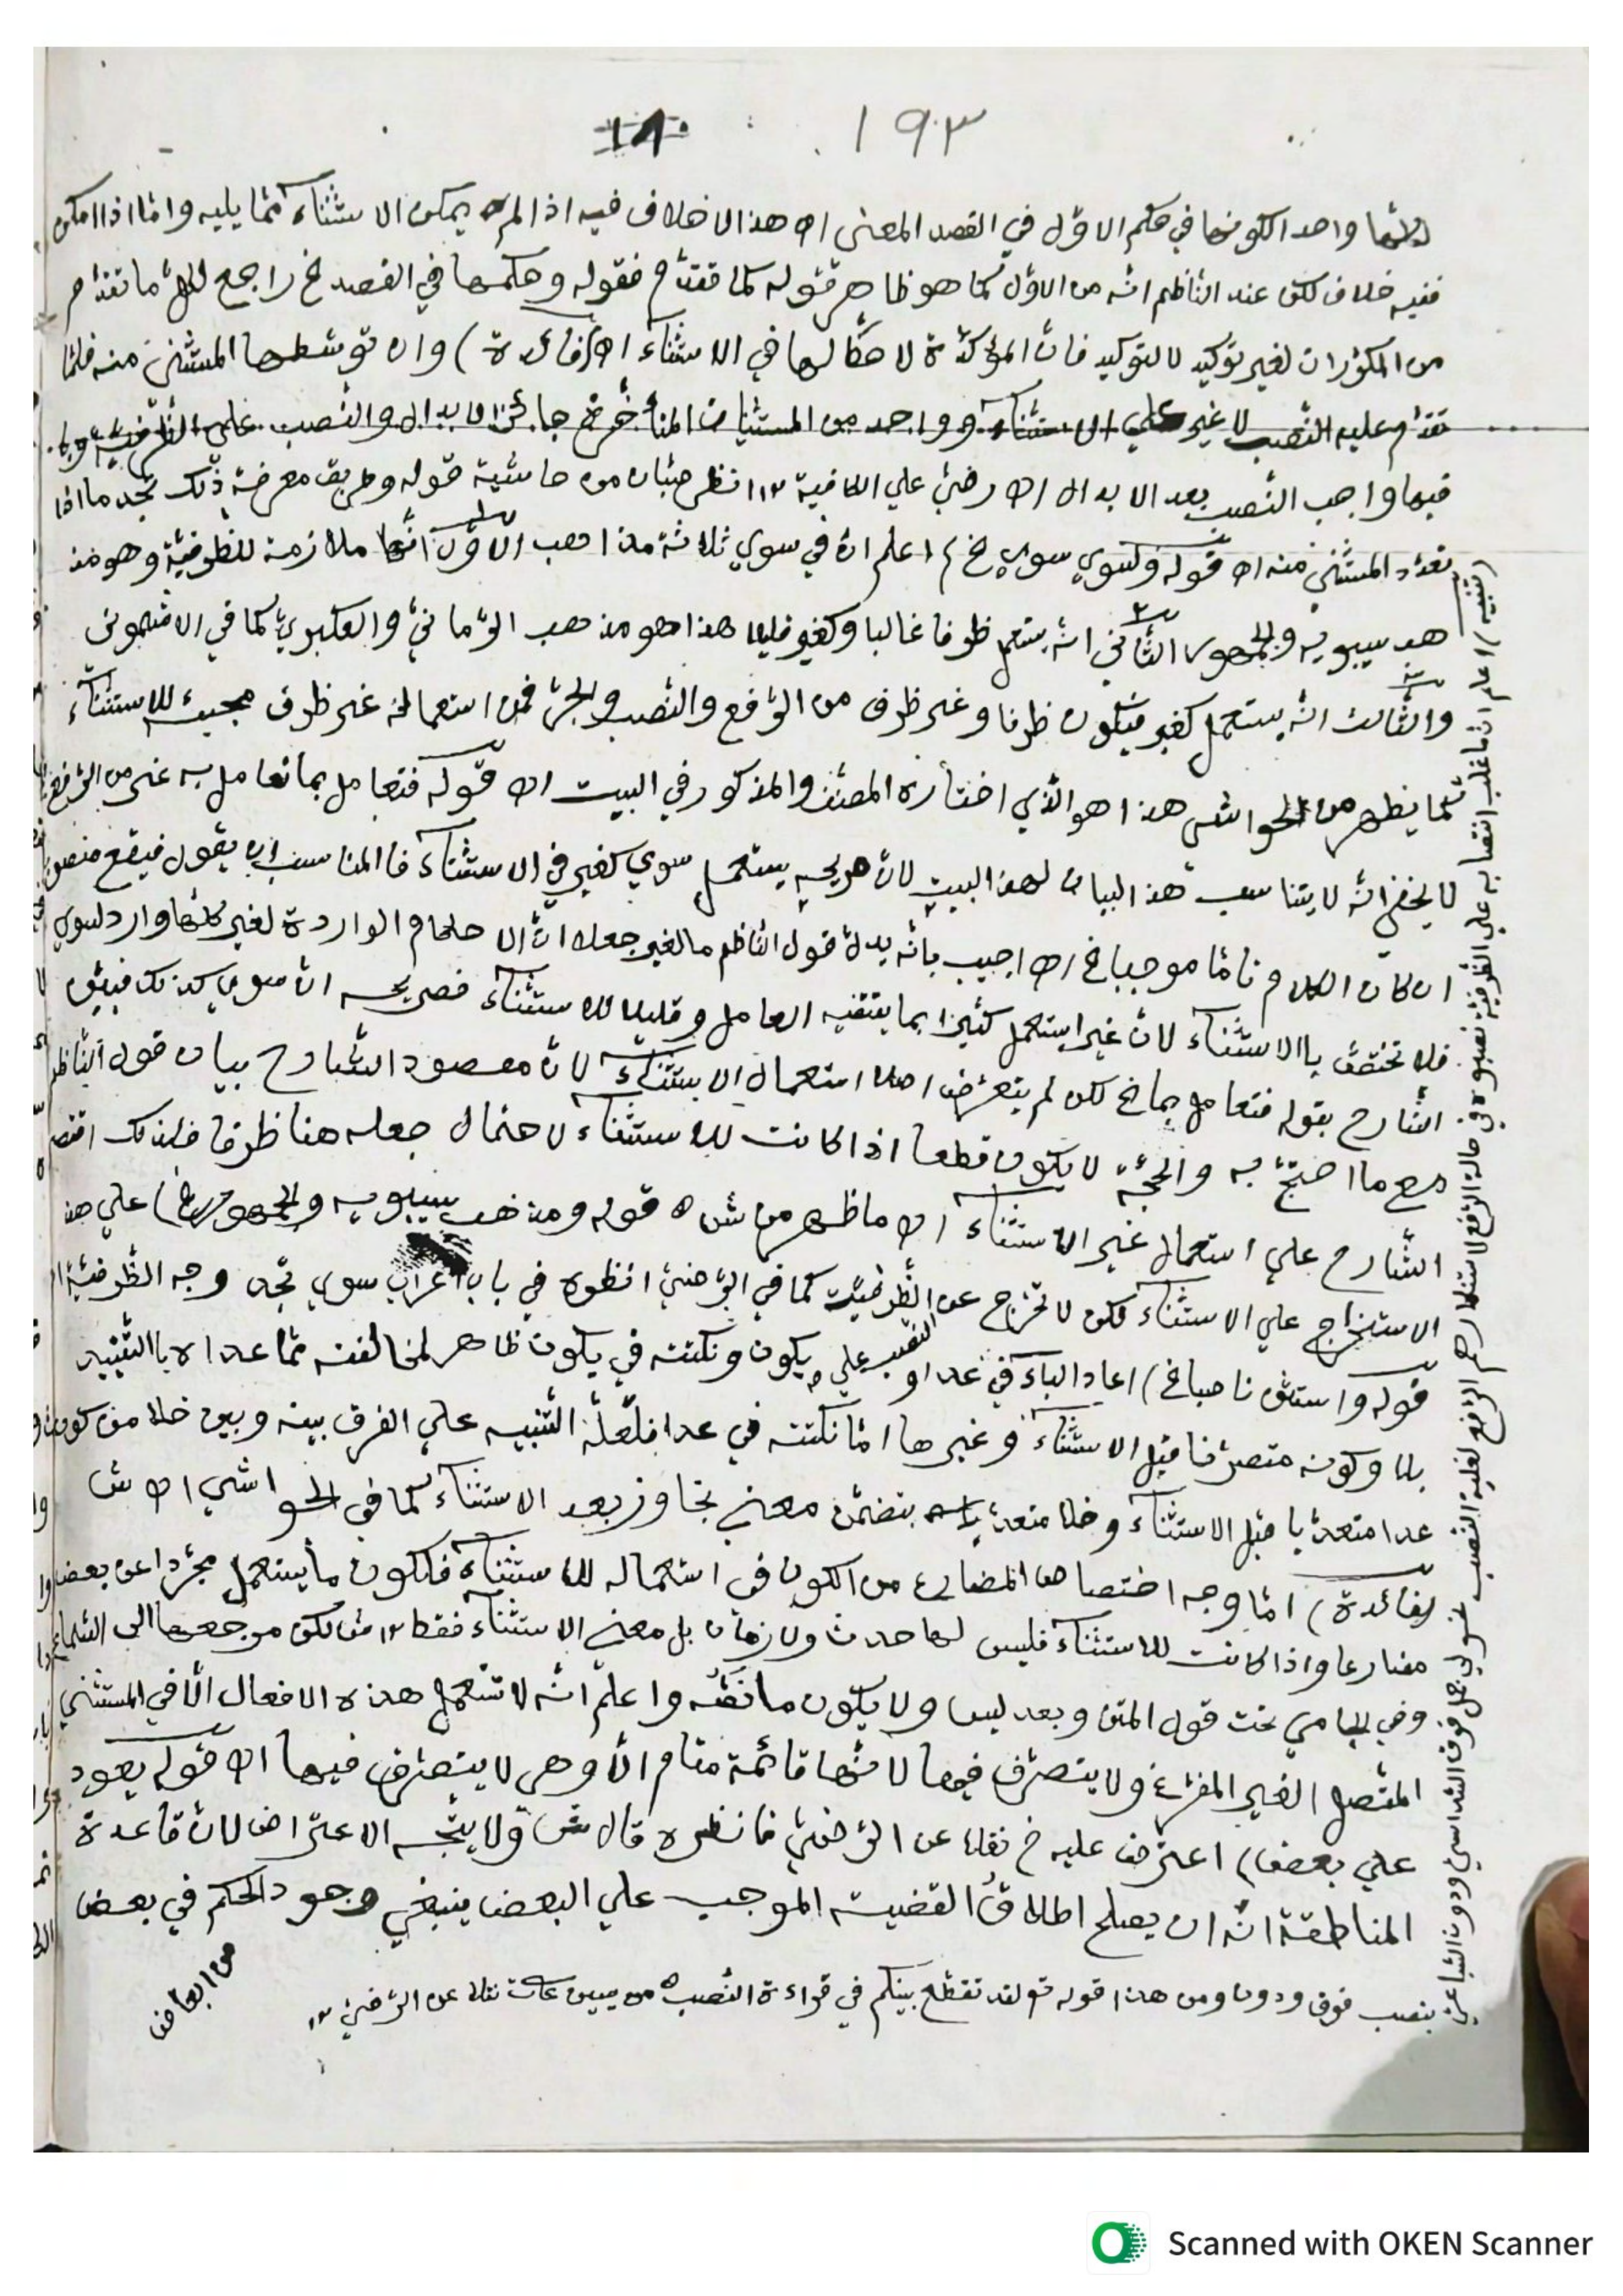 ١٩٣
واحد الكونها في حكم الاول في القصد المعنى اه هذا لا خلاف فيه اذا لم يمكن الاستثناء مما يليه واما اذا امكن
ففيه خلاف لكن عند الناظم انه من الاول كما هو ظاهر قوله كما تقدم فقوله وحكمها في القصد خ راجع لكل ما تقدم
من المكررات لغير توكيد لا لتوكيد فان المؤكدة لا حكم لها في الاستثناء اه (فائدة) وان توسطها المستثنى منه فلما
تقدم عليه النصب لا غير على الاستثناء وواحد من المستثنيات المتأخرة جائز الابدال والنصب على
فيها واجب النصب بعد الابدال اه رضي علي الكافية ١٢ انظر صبان من حاشية قوله وطريق معرفة ذلك تجد ما اذا
تعدد المستثنى منه اه قوله ولسوي سوي خ اعلم ان في سوي ثلاثة مذاهب الاول انها ملازمة للظرفية وهو مذ
هب سيبويه والجمهور الثاني انه يستعمل ظرفا غالبا وكغير قليلا هذا هو مذهب الرماني والعكبري كما في الاشموني
والثالث انه يستعمل كغير فيكون ظرفا وغير ظرف من الرفع والنصب والجر فمن استعماله غير ظرف مجيئه للاستثناء
كما يظهر من الحواشي هذا هو الذي اختاره المصنف والمذكور في البيت اه قوله فتعامل بما تعامل به غير من الرفع
لا يخفى انه لا يتناسب هذا البيان لهذا البيت لان صريحه يستعمل سوي كغير في الاستثناء فالمناسب ان يقول فيقع منصوبا
ان كان الكلام تاما موجبا خ اه اجيب بانه يدل قول الناظم ما لغير جعلا ان الاحكام الواردة لغير كلها وارد لسوي
فلا تختص بالاستثناء لان غير يستعمل كثيرا بما يقتضيه العامل وقليلا للاستثناء فصريحه ان سوي كذلك فبين
الشارح بقوله فتعامل بما خ لكن لم يتعرض اصلا استعمال الاستثناء لان مقصود الشارح بيان قول الناظم
مع ما احتج به والحجة لا يكون قطعا اذا كانت للاستثناء لاحتمال جعله هنا ظرفا فلذلك اقتصر
الشارح علي استعمال غير الاستثناء اه ما ظهر من ش اه قوله ومذهب سيبويه والجمهور خ) علي هذا
الاستخراج علي الاستثناء لكن لا تخرج عن الظرفية كما في الرضي انظره في باب اعراب سوي تجد وجه الظرفية
قوله واستثن ناصبا خ) اعاد الباء في عدا و يكون ونكتته في يكون ظاهر لمخالفته مما عداه بالتقييد
بلا وكونه متصرفا قبل الاستثناء وغيرها اما نكتته في عدا فلعله التنبيه علي الفرق بينه وبين خلا من كون
عدا متعديا قبل الاستثناء وخلا متعديا بتضمن معنى تجاوز بعد الاستثناء كما في الحواشي اه ش
(فائدة) اما وجه اختصاص المضارع من الكون في استعماله للاستثناء فلكون ما يستعمل مجردا عن بعض
مضارعا واذا كانت للاستثناء فليس لها حدث ولا زمان بل معنى الاستثناء فقط ١٢ ش لكن مرجعها الى السماع
وفي الجامي تحت قول المتن وبعد ليس ولا يكون ما نصه واعلم انه لا تستعمل هذه الافعال الا في المستثنى
المتصل الغير المفرغ ولا يتصرف فيها لانها قائمة مقام الا وهي لا يتصرف فيها اه قوله يعود
علي بعض) اعترض عليه خ نقلا عن الرضي فانظره قال ش ولا يتجه الاعتراض لان قاعدة
المناطقة انه ان يصلح اطلاق القضية الموجب علي البعض ينبغي وجود الحكم في بعض
من ابعاض
(تنبيه) اعلم ان ما غلب انتصابه علي الظرفية نصبوه في حالة الرفع لاستنكارهم الرفع لغلبة النصب دون
بنصب فوق ودون ومن هذا قوله تع لقد تقطع بينكم في قراءة النصب نقلا عن الرضي ١٢
Scanned with OKEN Scanner